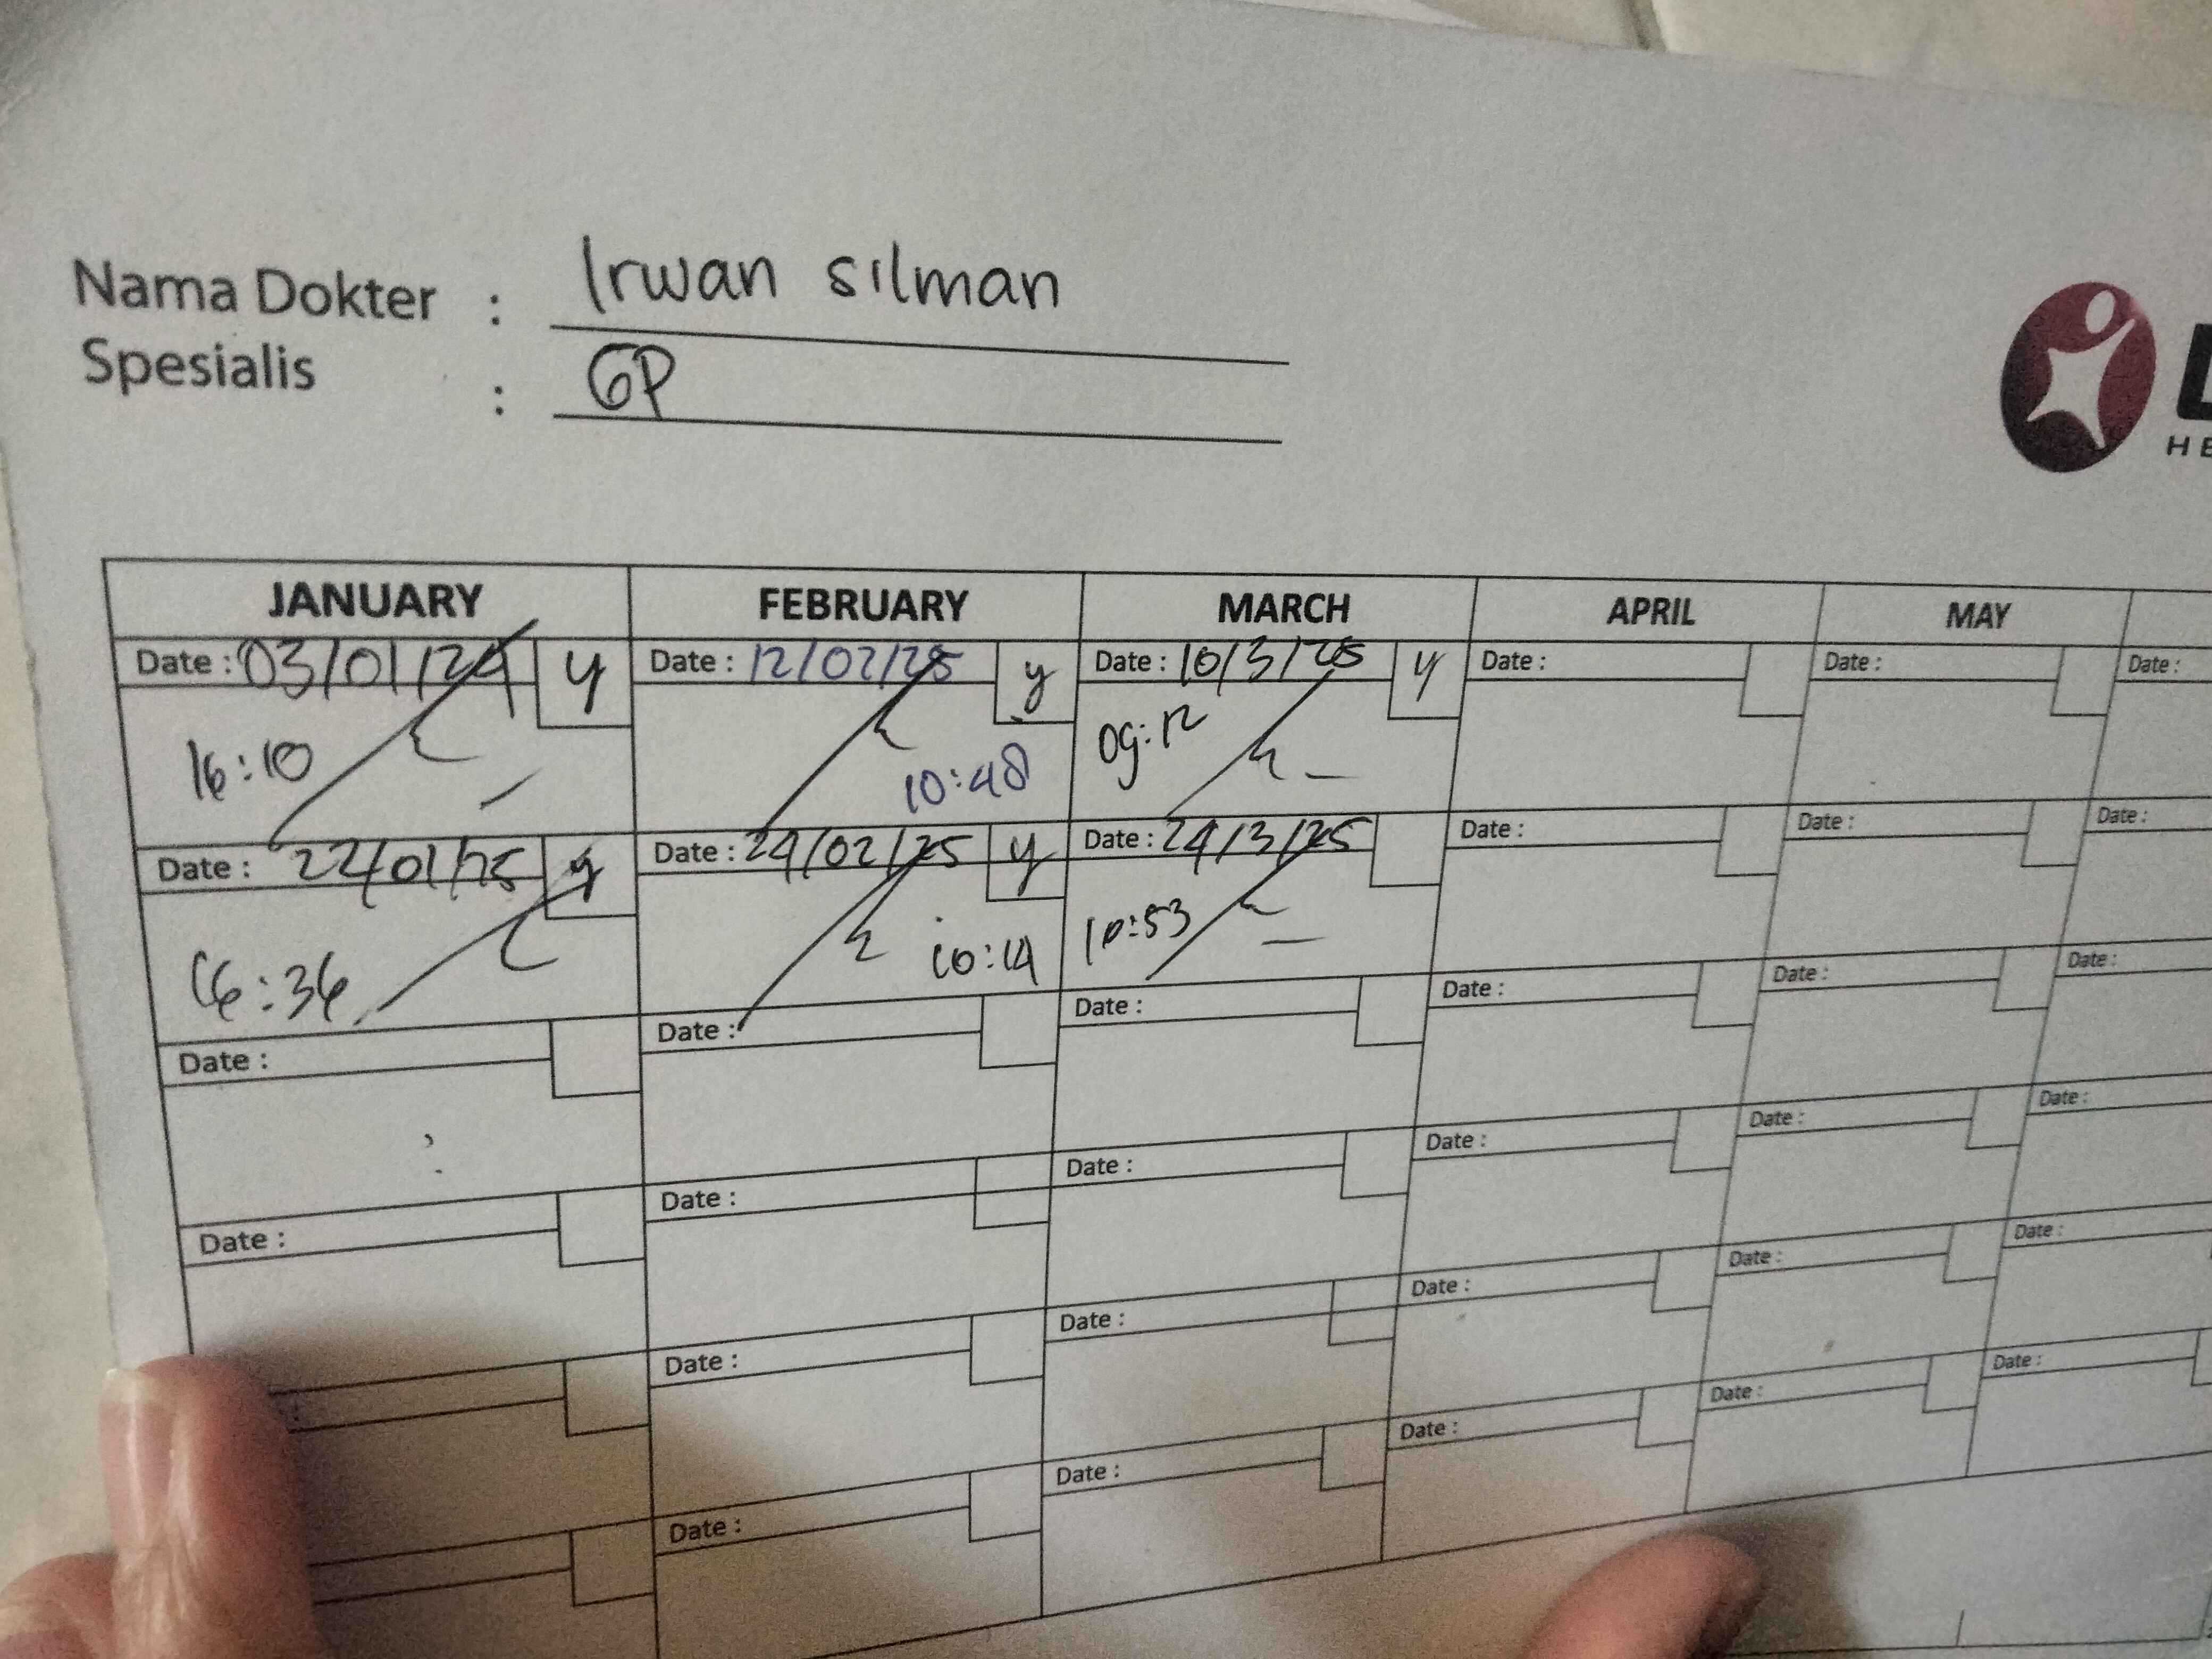 Nama Dokter : Irwan silman
Spesialis : GP
L
HE
JANUARY FEBRUARY MARCH APRIL MAY
Date : 03/01/24 y Date : 12/02/25 y Date : 10/3/25 y Date : Date : Date :
16:10 10:48 09:12
Date : 22/01/25 y Date : 24/02/25 y Date : 24/3/25 Date : Date : Date :
16:36 10:14 10:53
Date : Date : Date : Date : Date : Date :
Date : Date : Date : Date : Date : Date :
: Date : Date : Date : Date : Date :
Date : Date : Date : Date : Date :